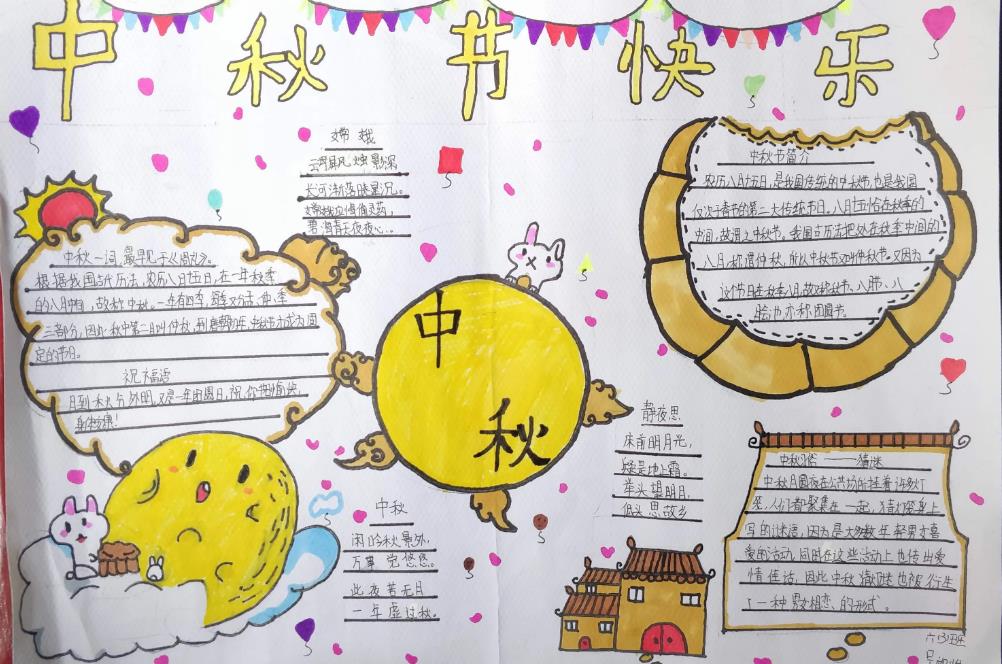 中秋节快乐
嫦娥
云母屏风烛影深
长河渐落晓星沉。
嫦娥应悔偷灵药，
碧海青天夜夜心。
中秋节简介
农历八月十五日，是我国传统的中秋节，也是我国
仅次于春节的第二大传统节日。八月十五恰在秋季的
中间，故谓之中秋节。我国古历法把处在秋季中间的
八月，称谓仲秋，所以中秋节又叫仲秋节。又因为
这个节日在秋季八月，故又称秋节、八月节、八
月会，也亦称团圆节。
中秋一词，最早见于《周礼》。
根据我国古代历法，农历八月十五日，在一年秋季
的八月中旬，故称中秋。一年有四季，每季又分孟、仲、季
三部分，因此秋中第二月叫仲秋，到唐朝初年，中秋节才成为固
定的节日。
祝福语
月到中秋分外明，又是一年团圆日，祝你节日愉快，
身体健康！
中
秋
静夜思
床前明月光，
疑是地上霜。
举头望明月，
低头思故乡
中秋
闲吟秋景外，
万事觉悠悠。
此夜若无月
一年虚过秋。
中秋习俗——猜谜
中秋月圆夜在公共场所挂着许多灯
笼，人们都聚集在一起，猜灯笼身上
写的谜语，因为是大多数年轻男女喜
爱的活动，同时在这些活动上也传出爱
情佳话，因此中秋猜灯谜也被衍生
了一种男女相恋的形式。
六(3)班